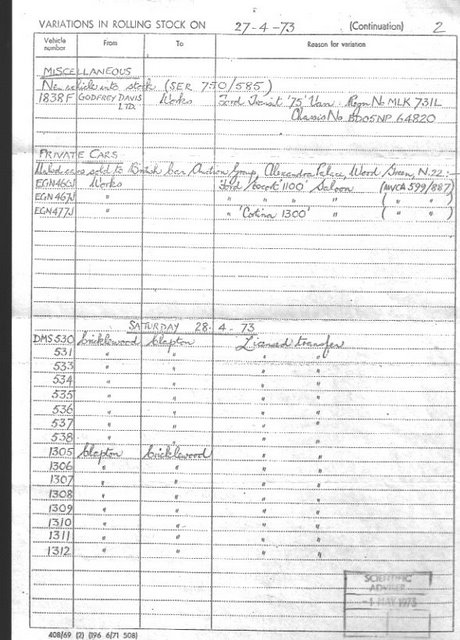 VARIATIONS IN ROLLING STOCK ON 27-4-73 (Continuation) 2
Vehicle number From To Reason for variation
MISCELLANEOUS
New vehicle into stock (SER 750/585)
1838F GODFREY DAVIS LTD. Works Ford Transit '75' Van Regn No MLK 731L
Chassis No BD05NP 64820
PRIVATE CARS
cars sold to British Car Auction Group, Alexandra Palace, Wood Green, N.22:-
EGN466J Works Ford Escort 1100' Saloon (MVCA 599/887)
EGN467J " " " " " ( " " )
EGN477J " " 'Cortina 1300' " ( " " )
SATURDAY 28-4-73
DMS 530 Cricklewood Clapton Licensed transfer
531 " " " "
533 " " " "
534 " " " "
535 " " " "
536 " " " "
537 " " " "
538 " " " "
1305 Clapton Cricklewood " "
1306 " " " "
1307 " " " "
1308 " " " "
1309 " " " "
1310 " " " "
1311 " " " "
1312 " " " "
SCIENTIFIC
ADVISER
-1 MAY 1973
408/69 (2) (196 6/71 508)